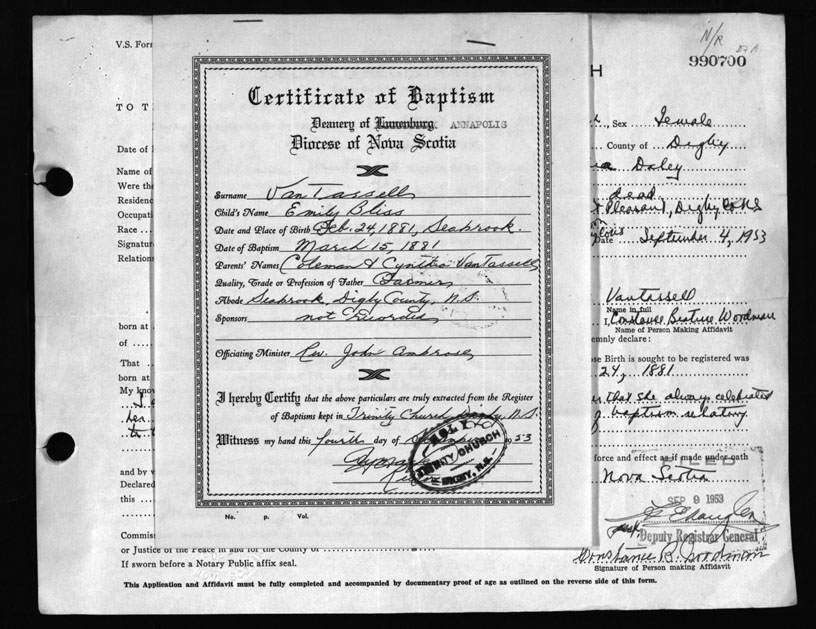 V.S. For
N/R
27 A.
990700
H
TO T
Sex Female
Date of
County of Digby
Name of
Daley
Were the
dead
Residenc
Pleasant, Digby Co NS
Occupati
Race
Date September 4, 1953
Signatur
Relations
Certificate of Baptism
Deanery of Lunenburg. ANNAPOLIS
Diocese of Nova Scotia
Surname VanTassell
Child's Name Emily Bliss
Date and Place of Birth Feb. 24, 1881, Seabrook.
Date of Baptism March 15, 1881
Parents' Names Coleman & Cynthia VanTassell
Quality, Trade or Profession of Father Farmer
Abode Seabrook, Digby County, N.S.
Sponsors not recorded
Officiating Minister Rev. John Ambrose
I hereby Certify that the above particulars are truly extracted from the Register
of Baptisms kept in Trinity Church Digby, N.S.
Witness my hand this fourth day of September 1953
HOLY
TRINITY CHURCH
DIGBY, N.S.
No. p. Vol.
Vantassell
Name in full
born at
I, Constance Beatrice Woodman
of
Name of Person Making Affidavit
emnly declare:
That
ose Birth is sought to be registered was
born at
24, 1881
My know
that she always celebrated
her
baptism
force and effect as if made under oath
and by v
Declared
Nova Scotia
this
FILED
SEP 9 1953
Deputy Registrar General
Commis
or Justice of the Peace in and for the County of
Constance B. Woodman
If sworn before a Notary Public affix seal.
Signature of Person making Affidavit
This Application and Affidavit must be fully completed and accompanied by documentary proof of age as outlined on the reverse side of this form.